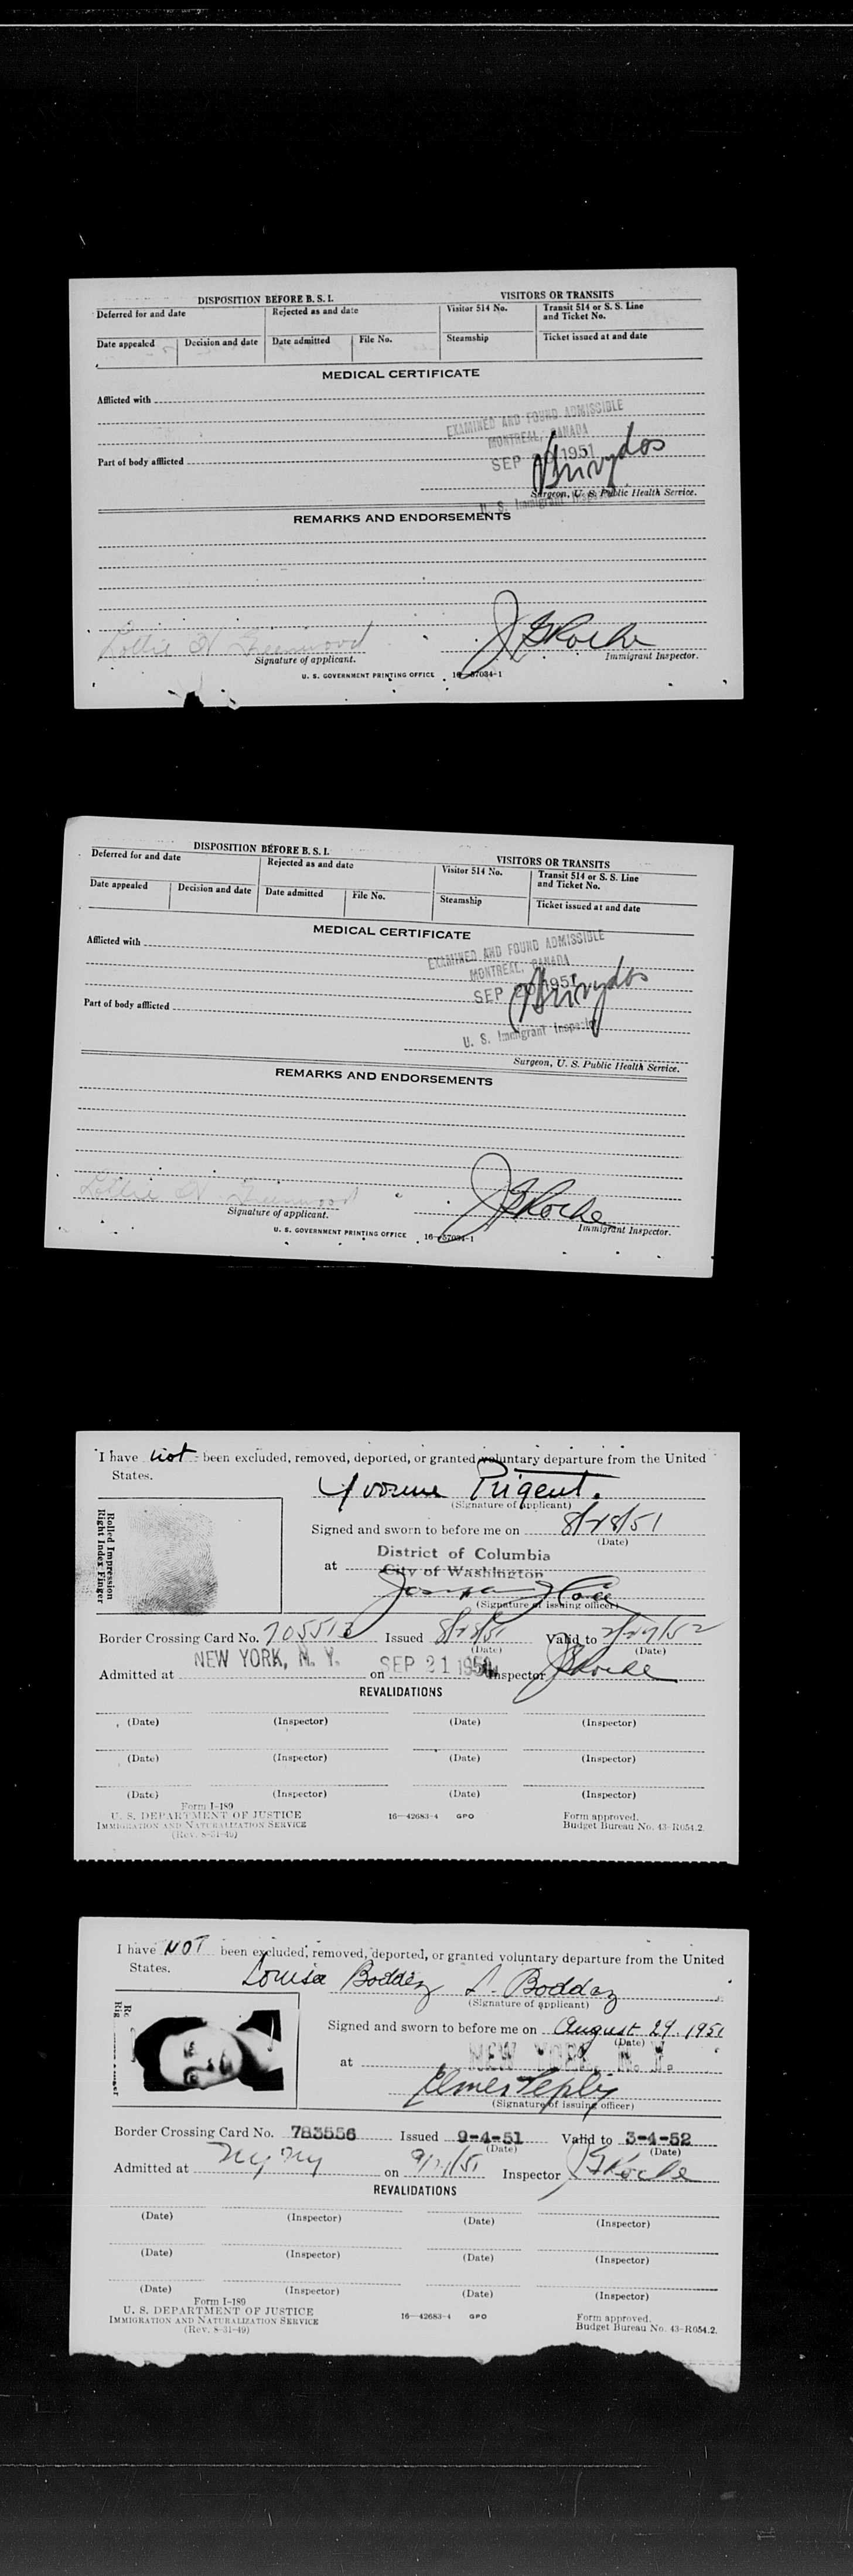 DISPOSITION BEFORE B. S. I. VISITORS OR TRANSITS
Deferred for and date Rejected as and date Visitor 514 No. Transit 514 or S. S. Line and Ticket No.
Date appealed Decision and date Date admitted File No. Steamship Ticket issued at and date
MEDICAL CERTIFICATE
Afflicted with
EXAMINED AND FOUND ADMISSIBLE
MONTREAL, CANADA
Part of body afflicted
SEP 1951
Surgeon, U. S. Public Health Service.
U. S. Immigrant
REMARKS AND ENDORSEMENTS
Lottie H Greenwood J G Roche
Signature of applicant. Immigrant Inspector.
U. S. GOVERNMENT PRINTING OFFICE 16—57034-1
DISPOSITION BEFORE B. S. I. VISITORS OR TRANSITS
Deferred for and date Rejected as and date Visitor 514 No. Transit 514 or S. S. Line and Ticket No.
Date appealed Decision and date Date admitted File No. Steamship Ticket issued at and date
MEDICAL CERTIFICATE
Afflicted with
EXAMINED AND FOUND ADMISSIBLE
MONTREAL, CANADA
SEP 20 1951
Part of body afflicted
U. S. Immigrant Inspector
Surgeon, U. S. Public Health Service.
REMARKS AND ENDORSEMENTS
Lottie H Greenwood J G Roche
Signature of applicant. Immigrant Inspector.
U. S. GOVERNMENT PRINTING OFFICE 16—57034-1
I have not been excluded, removed, deported, or granted voluntary departure from the United
States.
Yvonne Prigent.
(Signature of applicant)
Rolled Impression
Right Index Finger
Signed and sworn to before me on 8/28/51
(Date)
District of Columbia
at City of Washington
(Signature of issuing officer)
Border Crossing Card No. 705513 Issued 8/28/51 Valid to 2/27/52
(Date) (Date)
Admitted at NEW YORK, N. Y. on SEP 21 1951 Inspector J G Roche
REVALIDATIONS
(Date) (Inspector) (Date) (Inspector)
(Date) (Inspector) (Date) (Inspector)
(Date) (Inspector) (Date) (Inspector)
Form I-189
U. S. DEPARTMENT OF JUSTICE 16—42683-4 GPO Form approved.
IMMIGRATION AND NATURALIZATION SERVICE Budget Bureau No. 43-R054.2.
(Rev. 8-31-49)
I have NOT been excluded, removed, deported, or granted voluntary departure from the United
States.
Louisa Bodden L. Bodden
(Signature of applicant)
Signed and sworn to before me on August 29 1951
(Date)
at NEW YORK, N. Y.
(Signature of issuing officer)
Border Crossing Card No. 783556 Issued 9-4-51 Valid to 3-4-52
(Date) (Date)
Admitted at NY NY on 9/21/51 Inspector J G Roche
REVALIDATIONS
(Date) (Inspector) (Date) (Inspector)
(Date) (Inspector) (Date) (Inspector)
(Date) (Inspector) (Date) (Inspector)
Form I-189
U. S. DEPARTMENT OF JUSTICE 16—42683-4 GPO Form approved.
IMMIGRATION AND NATURALIZATION SERVICE Budget Bureau No. 43-R054.2.
(Rev. 8-31-49)